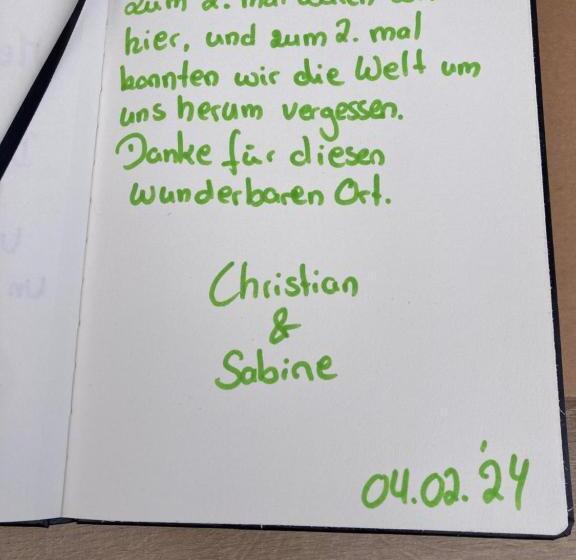 zum 2. mal waren wir
hier, und zum 2. mal
konnten wir die Welt um
uns herum vergessen.
Danke für diesen
wunderbaren Ort.
Christian
&
Sabine
04.02.'24